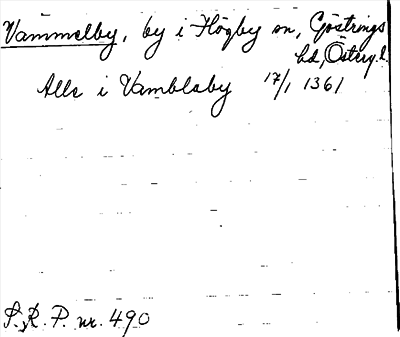 Vammelby, by i Högby sn, Göstrings
hd, Östergl.
Alle i Vamblaby 17/1 1361
S. R. P. nr. 490